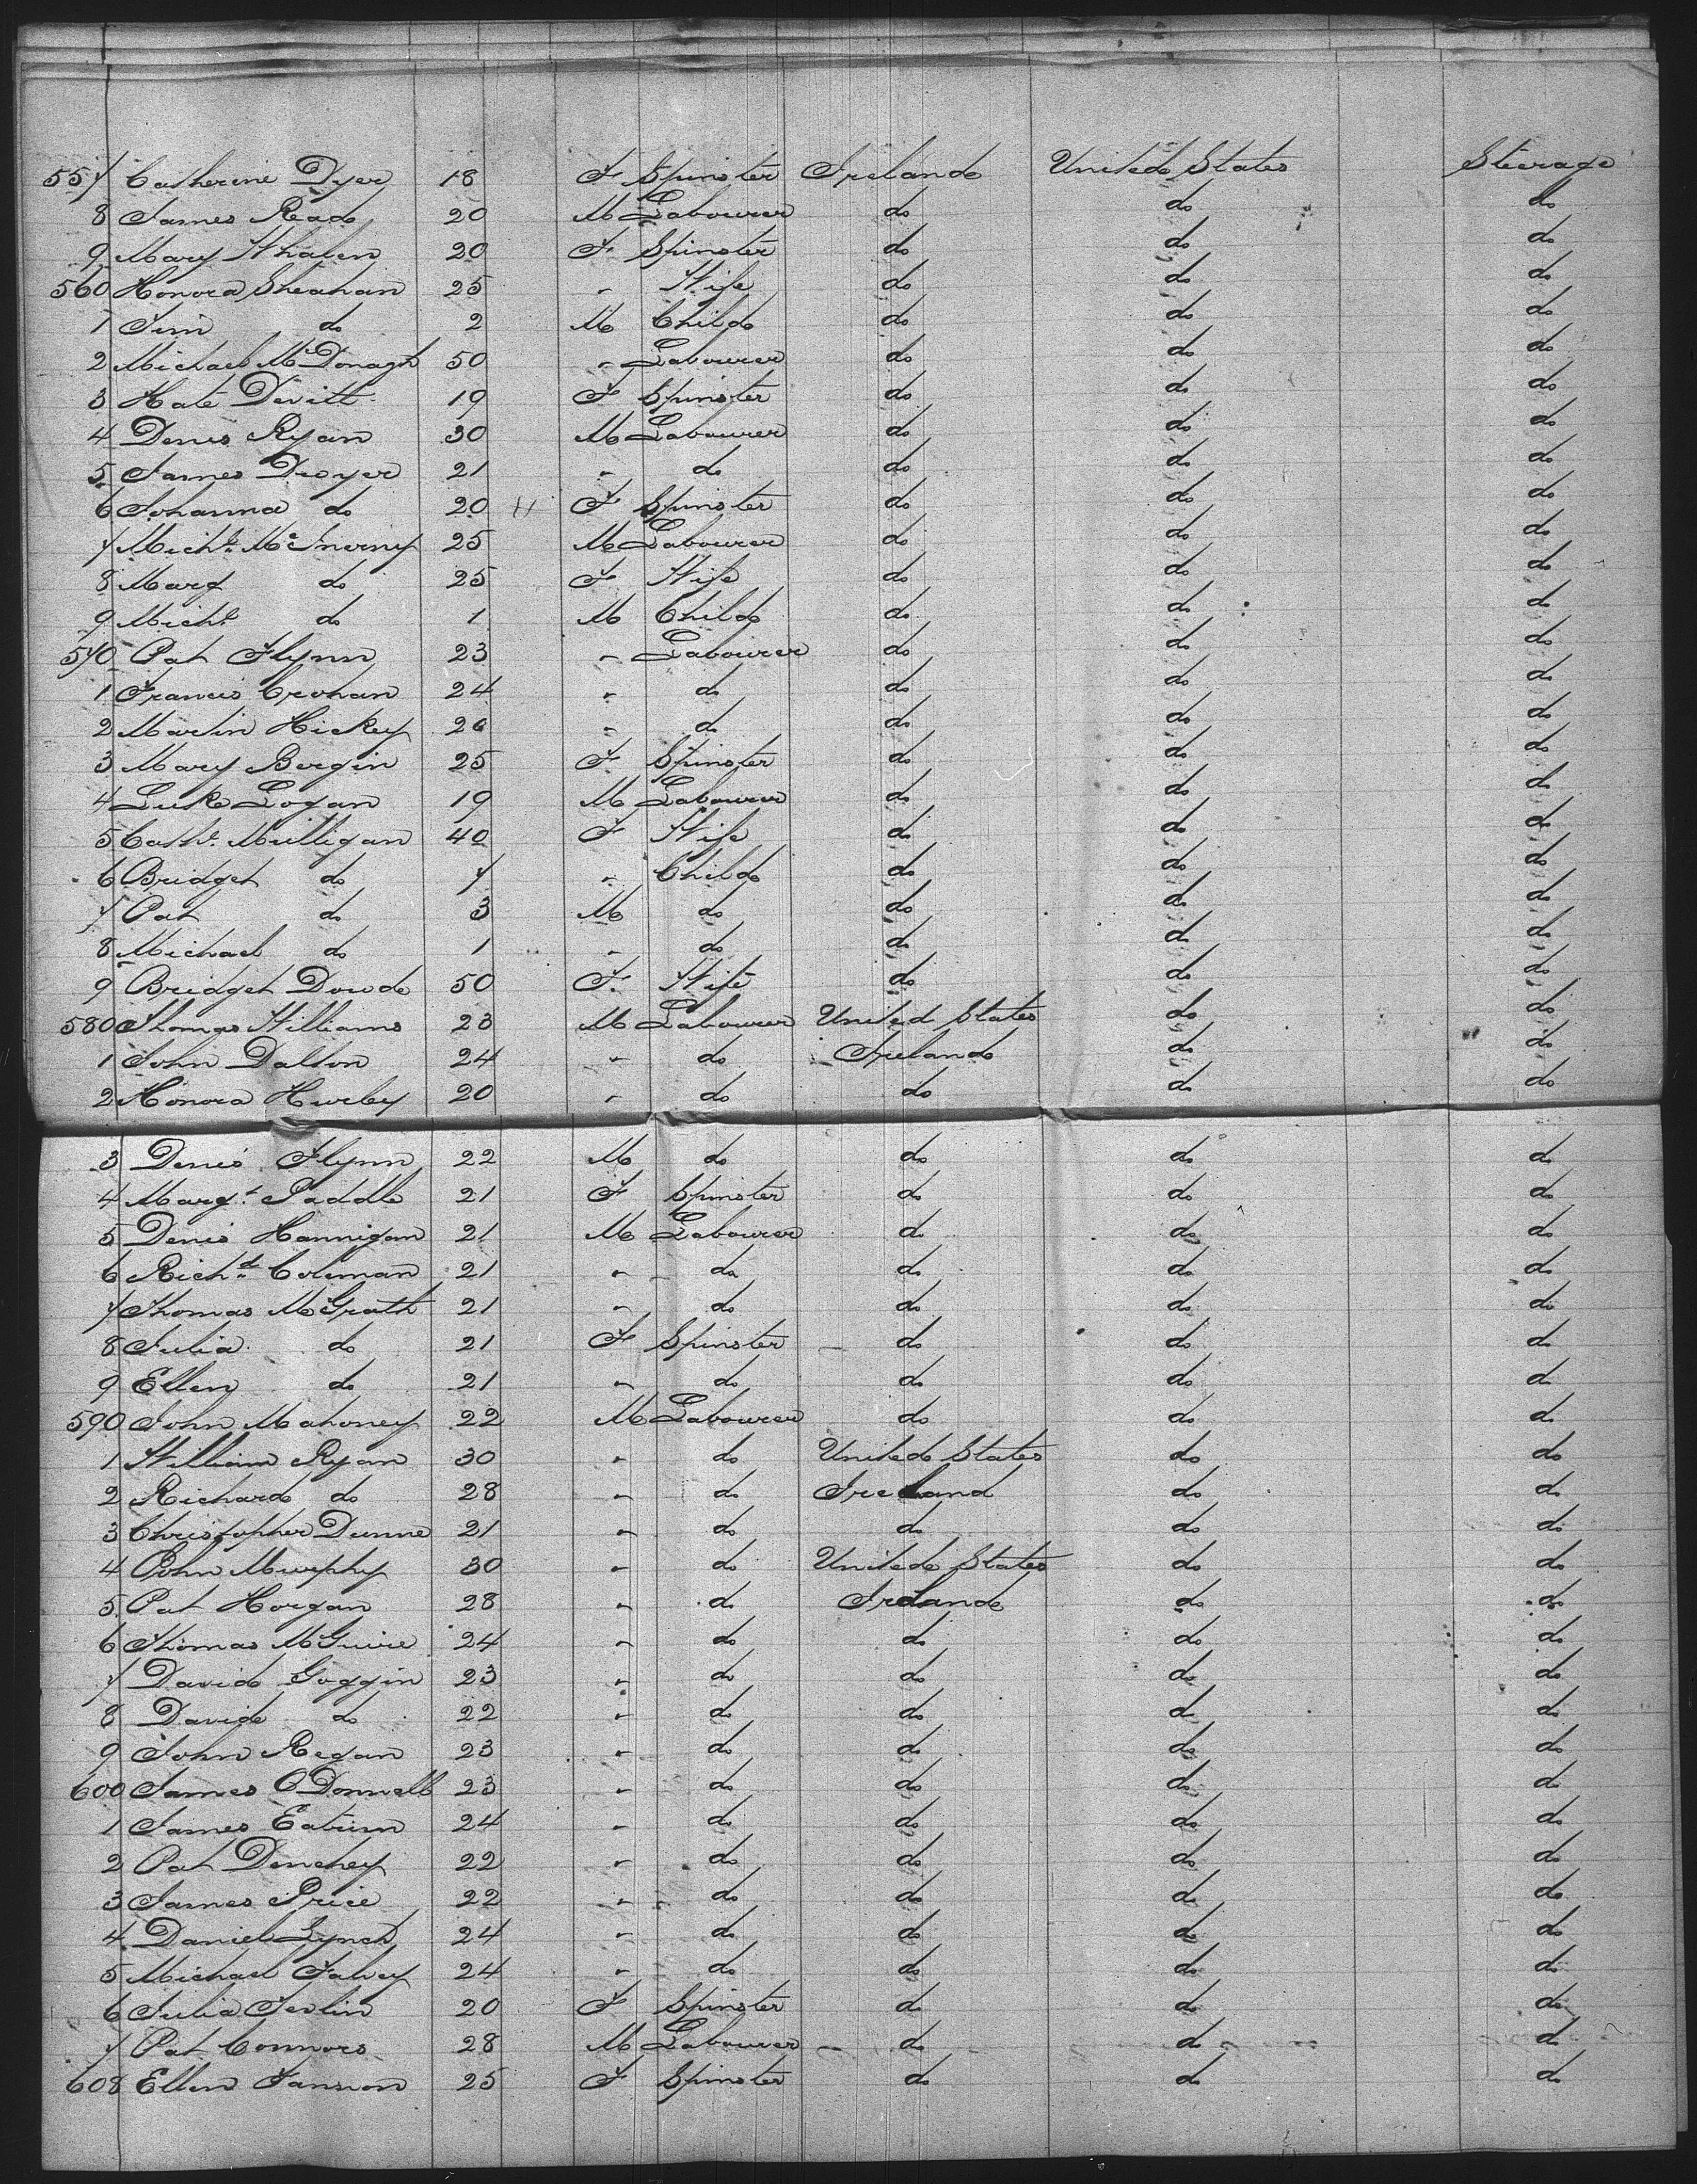 557 Catherine Dyer 18 F Spinster Ireland United States Steerage
8 James Read 20 M Labourer do do do
9 Mary Whalen 20 F Spinster do do do
560 Honora Sheahan 25 " Wife do do do
1 Jim do 2 M Child do do do
2 Michael McDonagh 50 " Labourer do do do
3 Kate Devitt 19 F Spinster do do do
4 Denis Ryan 30 M Labourer do do do
5 James Dwyer 21 " do do do do
6 Johanna do 20 11 F Spinster do do do
7 Michl McInerny 25 M Labourer do do do
8 Mary do 25 F Wife do do do
9 Michl do 1 M Child do do do
570 Pat Flynn 23 " Labourer do do do
1 Francis Cronan 24 " do do do do
2 Martin Hickey 26 " do do do do
3 Mary Bergin 25 F Spinster do do do
4 Luke Logan 19 M Labourer do do do
5 Cathe Mulligan 40 F Wife do do do
6 Bridget do 7 " Child do do do
7 Pat do 3 M do do do do
8 Michael do 1 " do do do do
9 Bridget Dowde 50 F Wife do do do
580 Thomas Williams 23 M Labourer United States do do
1 John Dalton 24 " do Ireland do do
2 Honora Hurley 20 " do do do do
3 Denis Flynn 22 M do do do do
4 Margt 21 F Spinster do do do
5 Denis Hannigan 21 M Labourer do do do
6 Richd Coleman 21 " do do do do
7 Thomas McGrath 21 " do do do do
8 Julia do 21 F Spinster do do do
9 Ellen do 21 " do do do do
590 John Mahoney 22 M Labourer do do do
1 William Ryan 30 " do United States do do
2 Richard do 28 " do Ireland do do
3 Christopher Dunne 21 " do do do do
4 John Murphy 30 " do United States do do
5 Pat Horgan 28 " do Ireland do do
6 Thomas McGuire 24 " do do do do
7 David Goggin 23 " do do do do
8 David do 22 " do do do do
9 John Regan 23 " do do do do
600 James O'Donnell 23 " do do do do
1 James 24 " do do do do
2 Pat Denehey 22 " do do do do
3 James Price 22 " do do do do
4 Daniel Lynch 24 " do do do do
5 Michael Falvey 24 " do do do do
6 Julia 20 F Spinster do do do
7 Pat Connors 28 M Labourer do do do
608 Ellen 25 F Spinster do do do